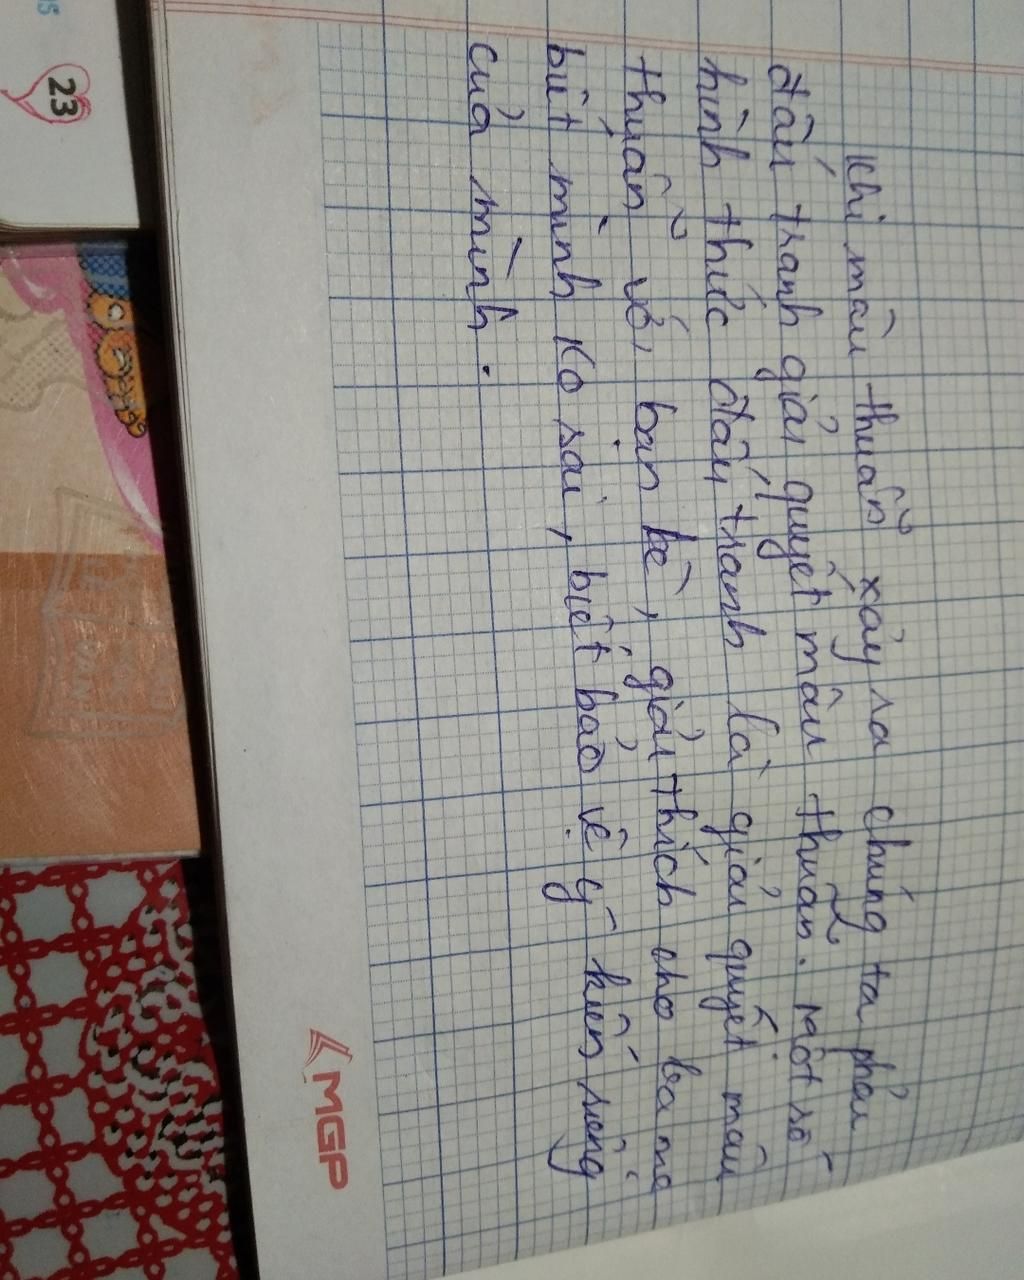 Khi mâu thuẫn xảy ra chúng ta phải
đấu tranh giải quyết mâu thuẫn. Một số
hình thức đấu tranh là giải quyết mâu
thuẫn với bạn bè, giải thích cho ba mẹ
biết mình ko sai, biết bảo vệ ý kiến riêng
của mình.
MGP
23